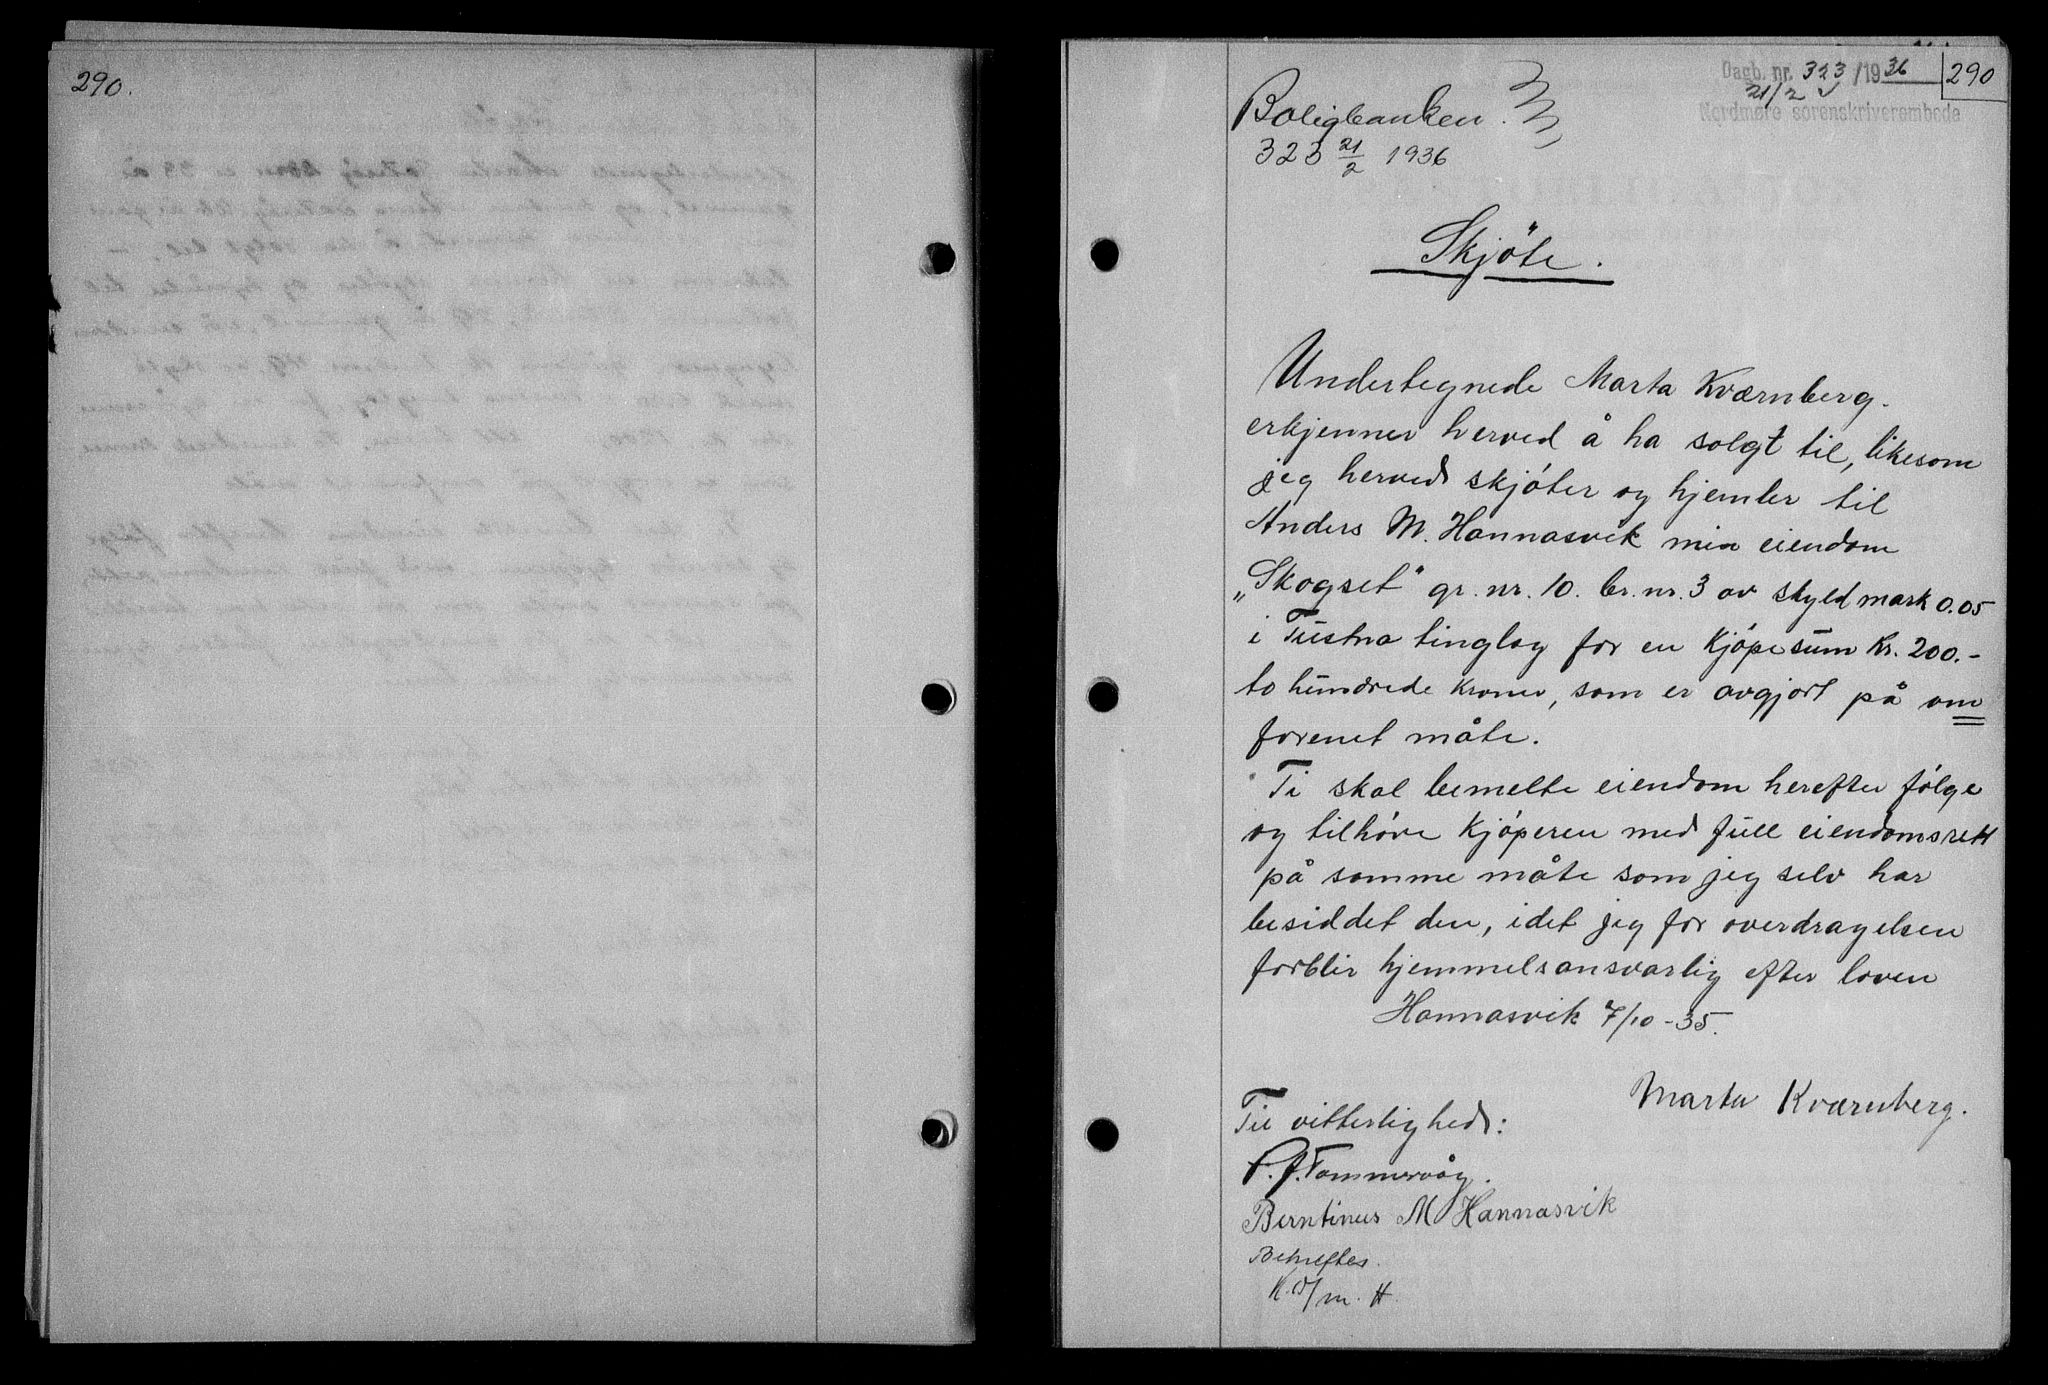 290.
Dagb. nr. 323/1936
21/2
290
Nordmøre sorenskriverembede
Boligbanken.
323 21/2 1936
Skjöte.
Undertegnede Marta Kværnberg.
erkjenner herved å ha solgt til, likesom
jeg herved skjöter og hjemler til
Anders M. Hannasvik min eiendom
„Skogset" gr. nr. 10. br. nr. 3 av skyld mark 0.05
i Tustna tinglag for en kjöpesum kr. 200.-
to hundrede kroner, som er avgjort på om
forenet måte.
Ti skal bemelte eiendom herefter fölge
og tilhöre kjöperen med full eiendomsrett
på samme måte som jeg selv har
besiddet den, idet jeg for overdragelsen
forblir hjemmelsansvarlig efter loven
Hannasvik 7/10-35.
Marta Kværnberg.
Til vitterlighed:
P. J. Tommervåg.
Berntinus M Hannasvik
Bekreftes.